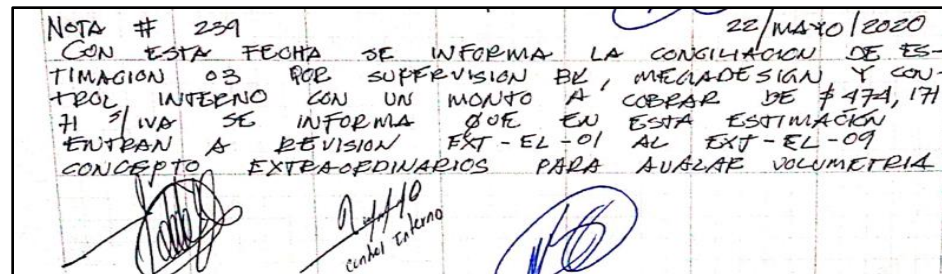 NOTA # 239 22/MAYO/2020
CON ESTA FECHA SE INFORMA LA CONCILIACION DE ES-
TIMACION 03 POR SUPERVISION BK, MEGADESIGN Y CON-
TROL INTERNO CON UN MONTO A COBRAR DE $474,171
71 S/IVA SE INFORMA QUE EN ESTA ESTIMACION
ENTRAN A REVISION EXT-EL-01 AL EXT-EL-09
CONCEPTO EXTRAORDINARIOS PARA AVALAR VOLUMETRIA
Control Interno